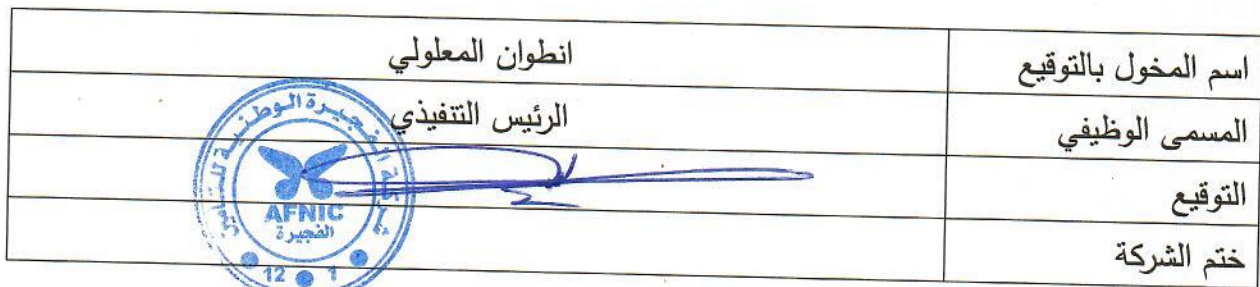 اسم المخول بالتوقيع انطوان المعلولي
المسمى الوظيفي الرئيس التنفيذي
التوقيع
ختم الشركة
شركة الفجيرة الوطنية للتامين
AFNIC
الفجيرة
12 1